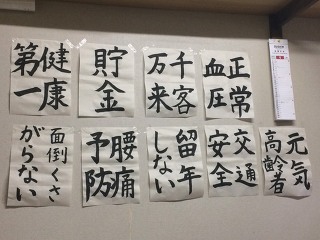 健康
第一
貯金
千客
万来
正常
血圧
面倒くさ
がらない
腰痛
予防
留年
しない
交通
安全
元気
高齢者